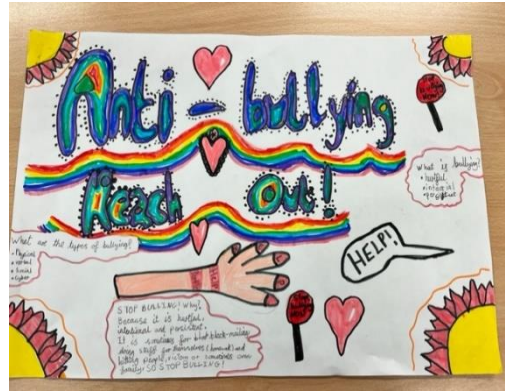 Anti - bullying
Reach Out!
What is bullying?
• hurtful
• intentional
• persistent
What are the types of bullying?
• Physical
• verbal
• Social
• cyber
HELP!
STOP BULLING! Why?
Because it is hurtful,
intentional and persistent.
It is sometimes for
stuff for themselves
people,
family SO STOP BULLING!